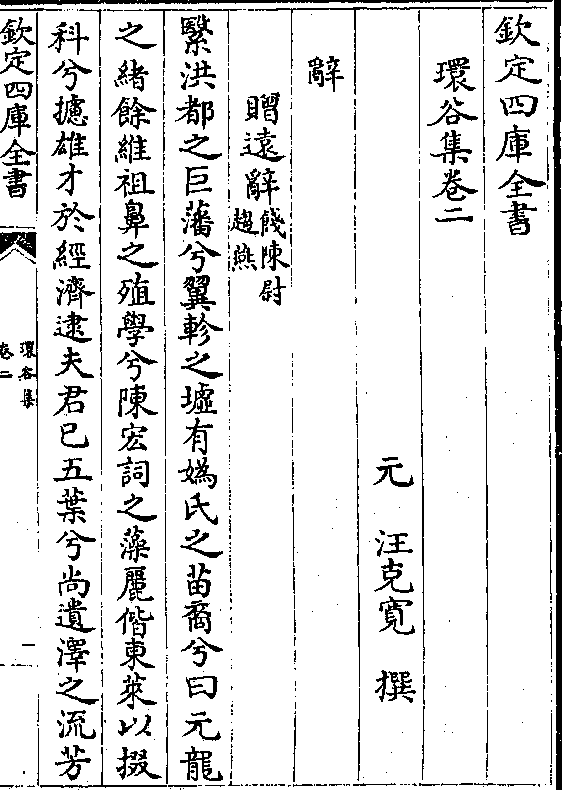 欽定四庫全書
環谷集卷二
元 汪克寬 撰
辭
贈遠辭餞陳尉
趨燕
繄洪都之巨藩兮翼軫之墟有媯氏之苗裔兮曰元龍
之緒餘維祖鼻之殖學兮陳宏詞之藻麗偕東萊以掇
科兮攄雄才於經濟逮夫君已五葉兮尚遺澤之流芳
欽定四庫全書
環谷集
卷二
一